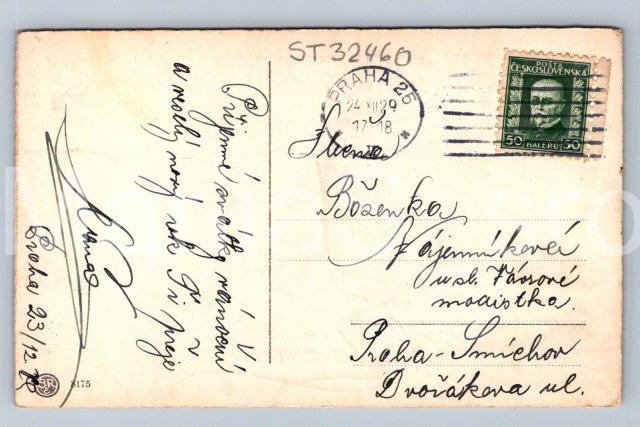 ST32460
PRAHA 25
24 XII 29
17-18
POŠTA
ČESKOSLOVENSKÁ
50 50
HALÉŘŮ
Příjemné svátky vánoční
a veselý nový rok Ti přeje
Praha 23/12
Slečna
Boženka
Nájemníková
u sl. Vávrové
modistka.
Praha-Smíchov
Dvořákova ul.
8175